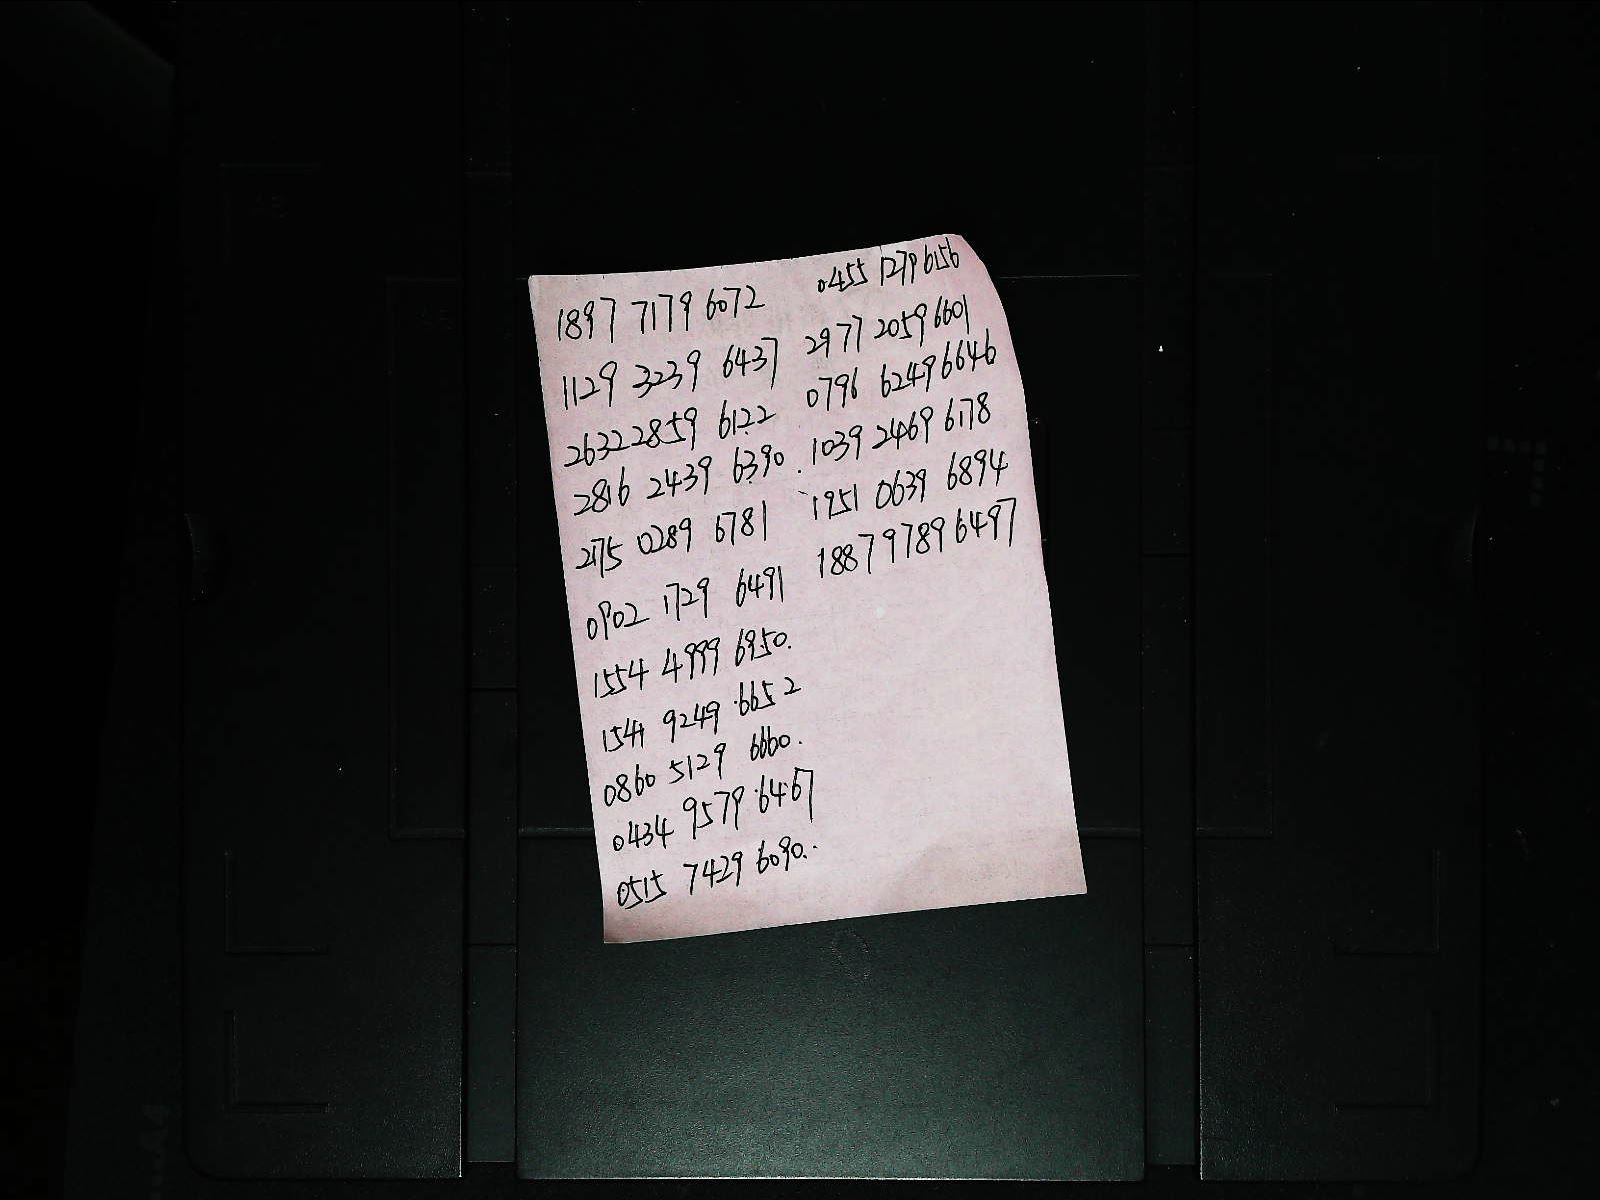 1897 7179 6072
1129 3239 6437
2632 2859 6122
2816 2439 6390
2175 0289 6781
0902 1729 6491
1554 4999 6950.
1541 9249 6652
0860 5129 6660.
0434 9579 6467
0515 7429 6090..
0455 1279 6156
2977 2059 6601
0796 6249 6646
1039 2469 6178
1951 0639 6894
1887 9789 6497